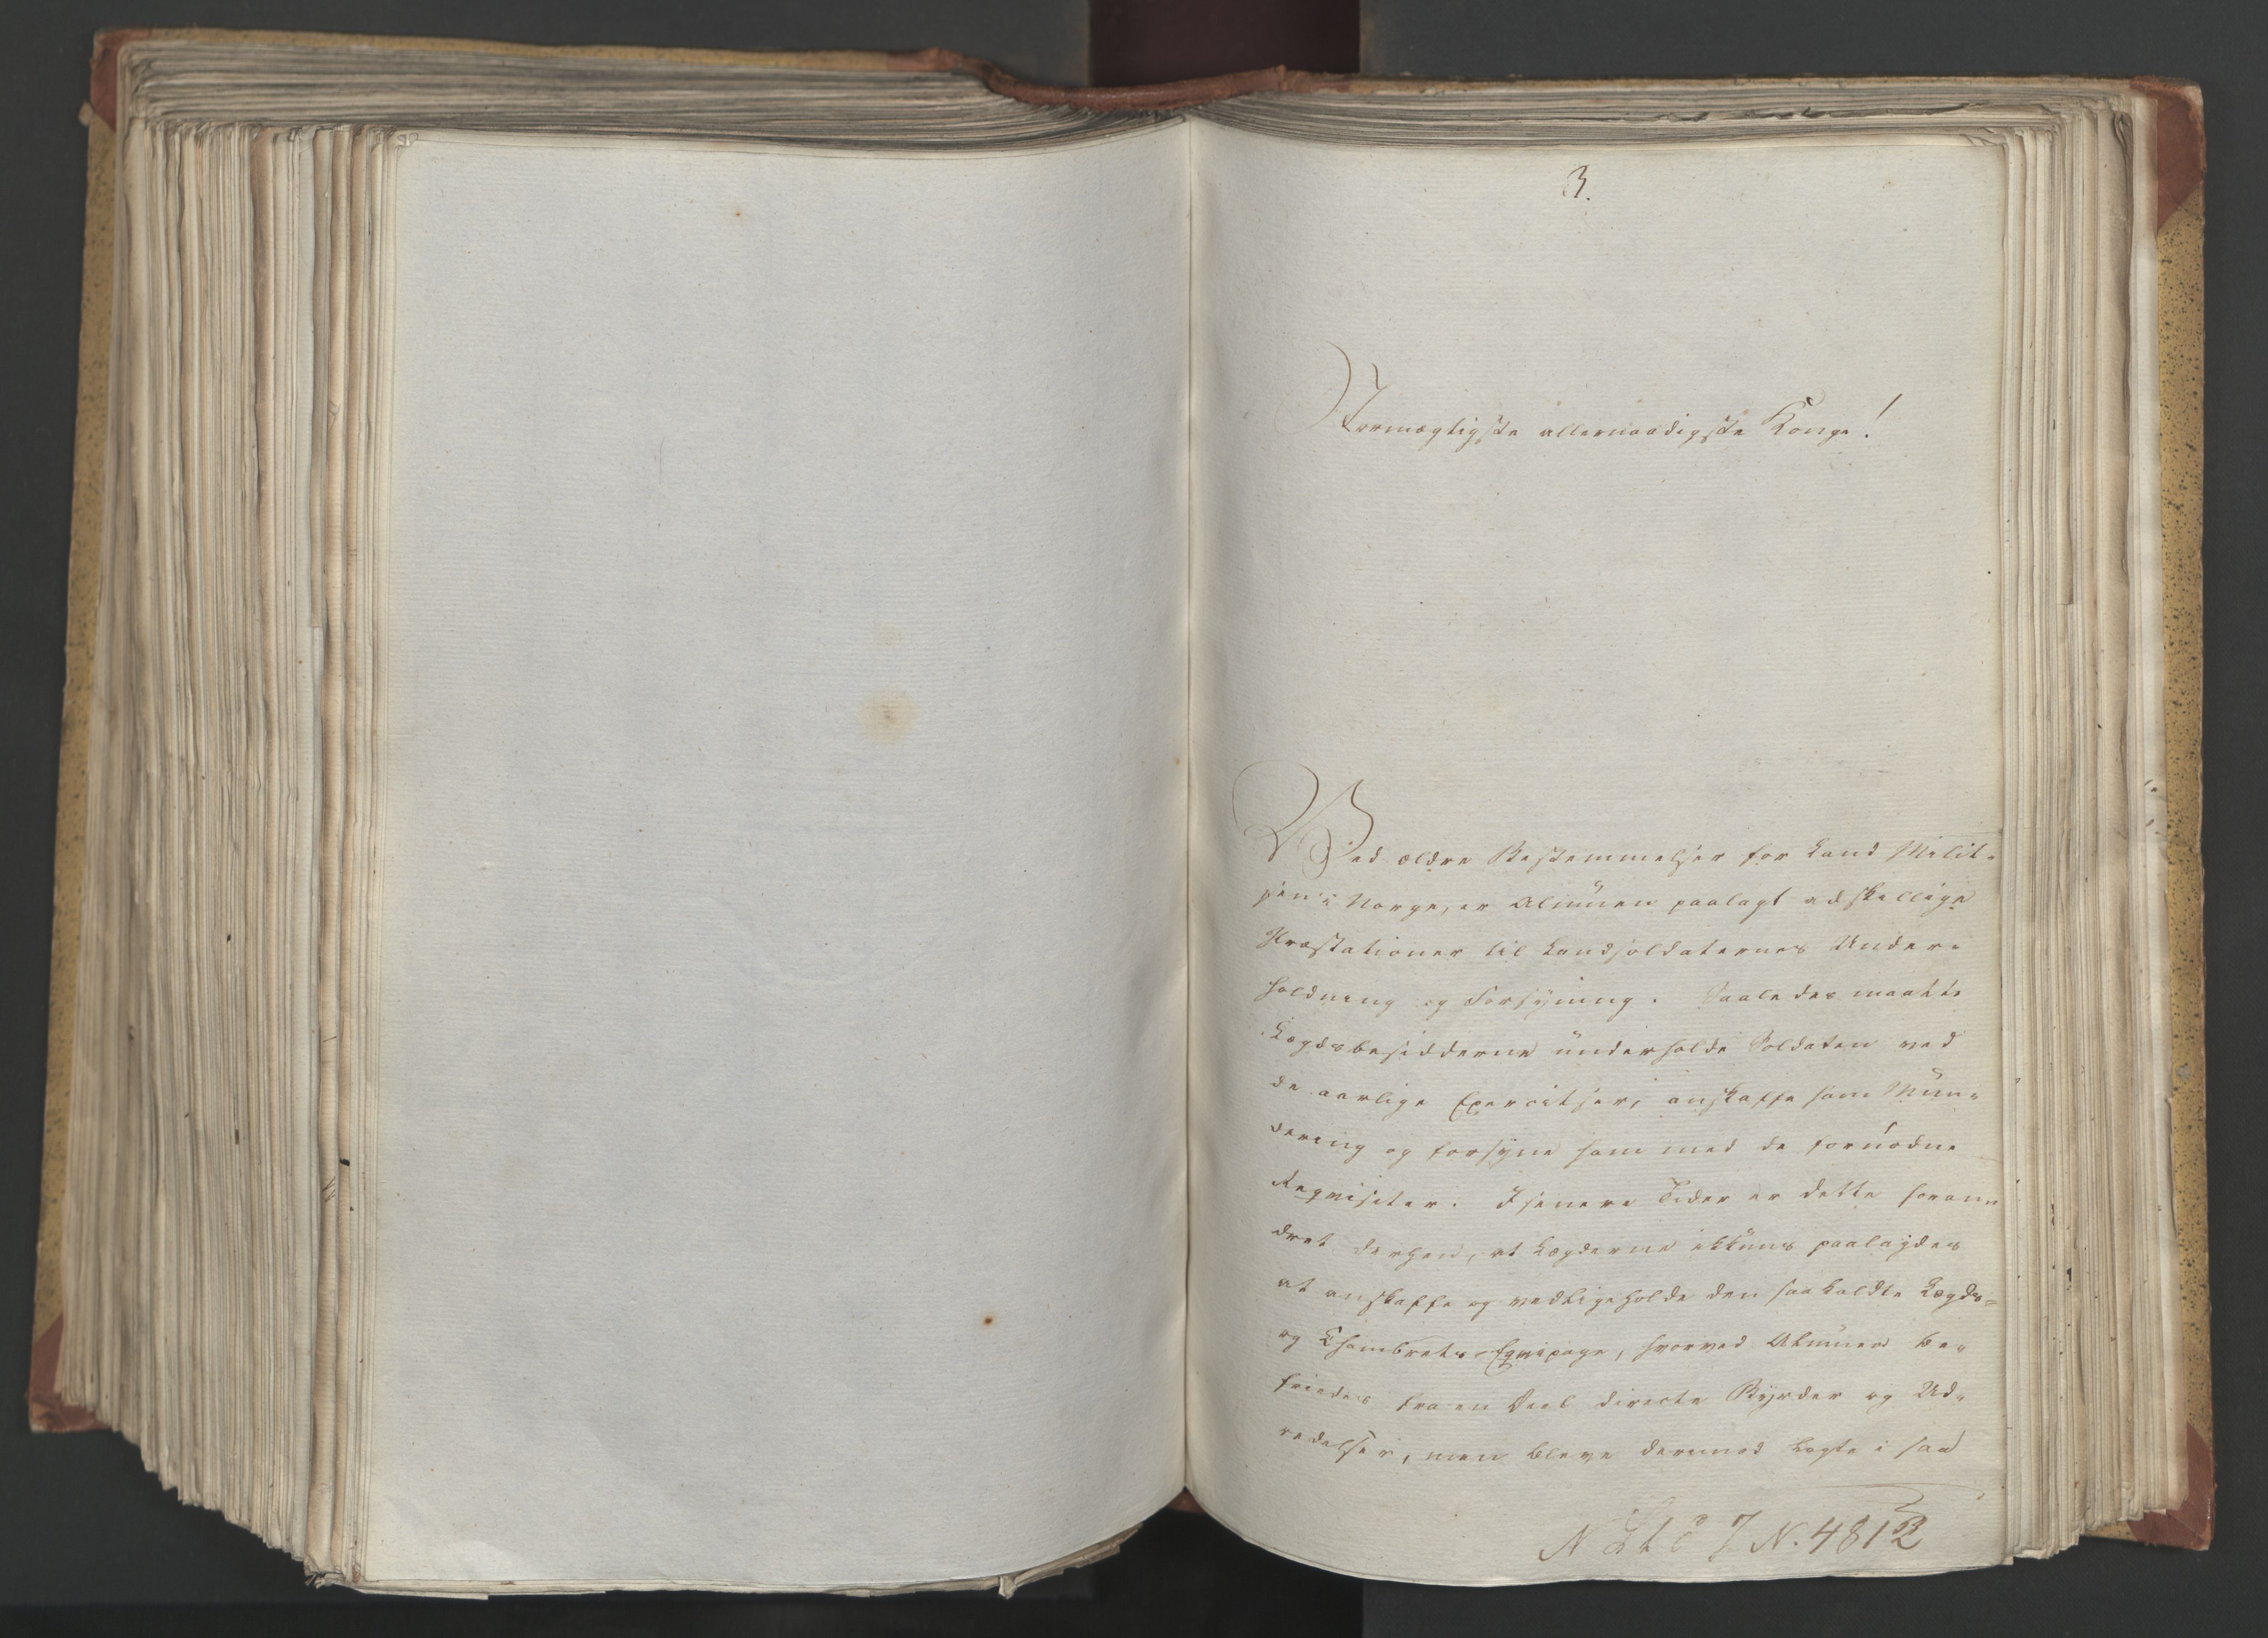 3.
Stormægtigste allernaadigste Konge!
Ved ældre Bestemmelser for Land Milit-
sen i Norge, er Almuen paalagt adskillige
Præstationer til Landsoldaternes Under-
holdning og Forsyning. Saaledes maatte
Lægdsbesidderne underholde Soldaten ved
de aarlige Exercitser, anskaffe ham Mun-
dering og forsyne ham med de fornødne
Reqvisiter. I senere Tider er dette foran-
dret derhen, at Lægderne ikkuns paalagdes
at anskaffe og vedligeholde den saakaldte Lægds-
og Chambrets-Eqvipage, hvorved Almuen be-
friedes fra en Deel directe Byrder og Ud-
redelser, men bleve derimod lagte i saa
N. 4812